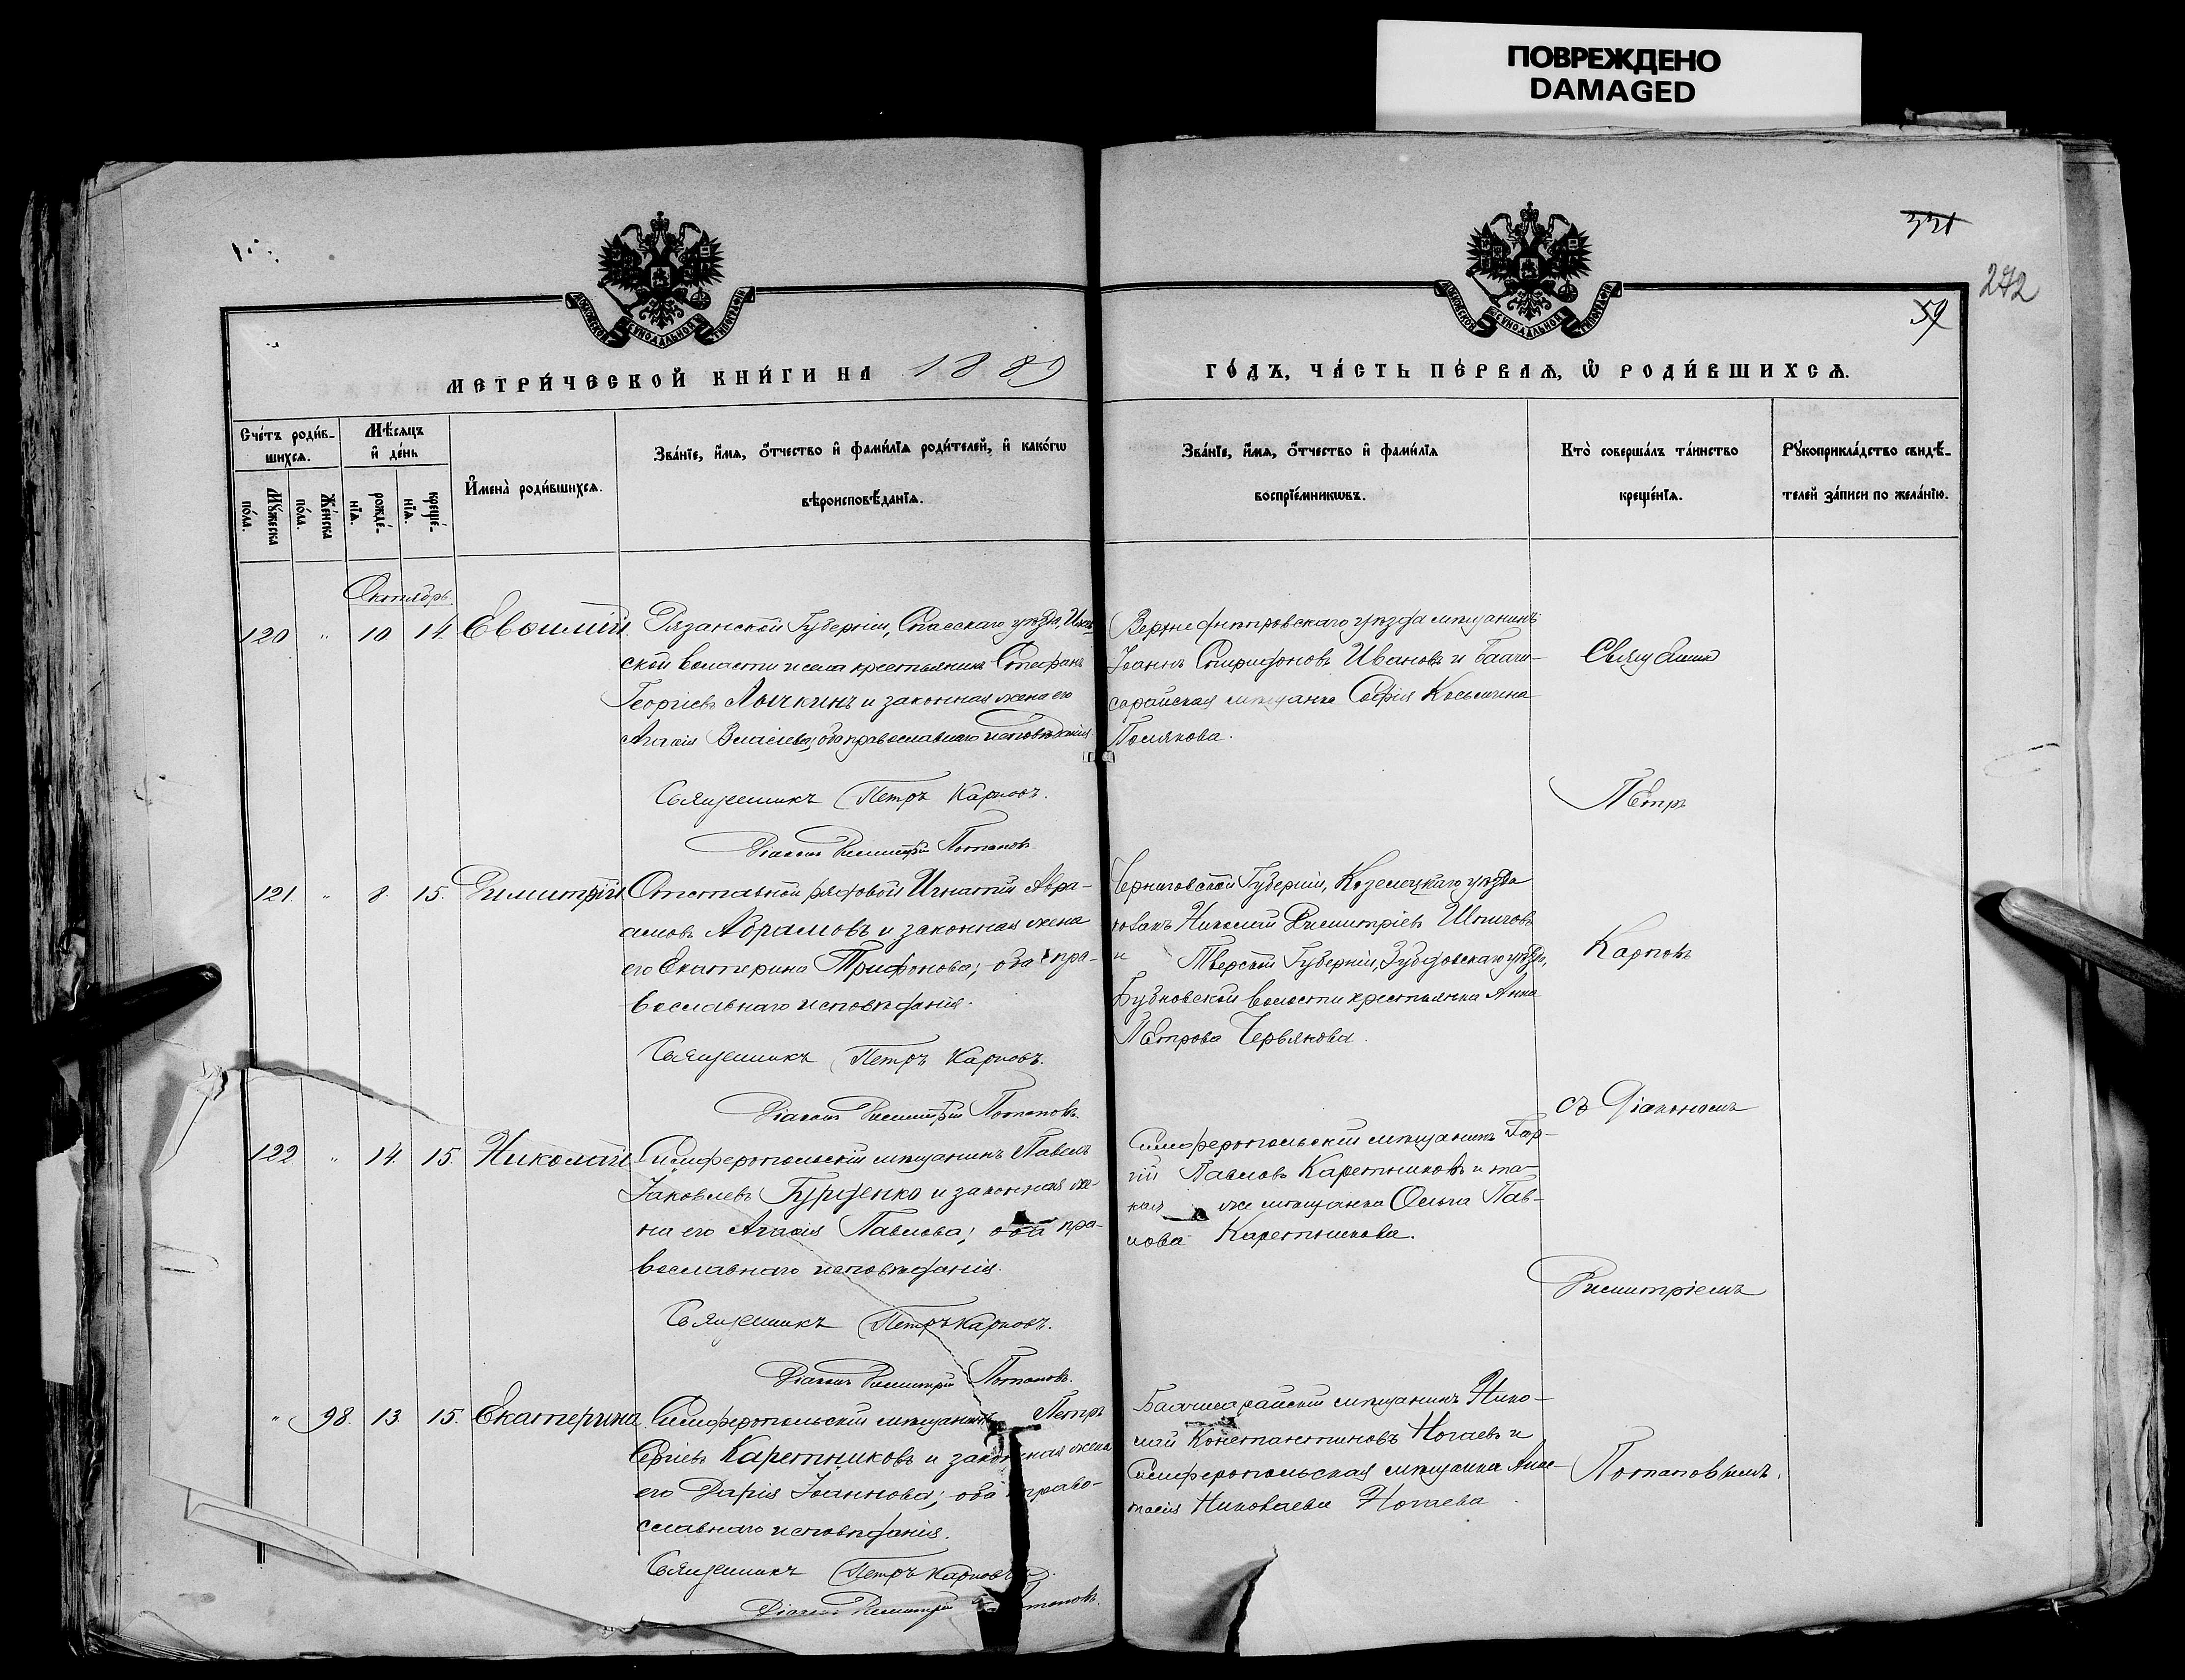 ПОВРЕЖДЕНО
DAMAGED
331
272
59
МОСКОВСКОЙ СѴНОДАЛЬНОЙ ТИПОГРАФІИ
МОСКОВСКОЙ СѴНОДАЛЬНОЙ ТИПОГРАФІИ
МЕТРИ́ЧЕСКОЙ КНИ́ГИ НА 1889
ГО́ДЪ, ЧА́СТЬ ПЕ́РВАѦ, Ѡ РОДИ́ВШИХСѦ.
Сче́тъ роди́в-
шихсѧ.
Мѣ́сѧцъ
и де́нь
Мꙋ́жеска
по́ла.
Же́нска
по́ла.
рожде́-
нїѧ.
креще́-
нїѧ.
И́мена̀ роди́вшихсѧ.
Зва́нїе, и́мѧ, о́тчество и фами́лїѧ роди́телей, и како́гѡ
вѣроисповѣ́данїѧ.
Зва́нїе, и́мѧ, о́тчество и фами́лїѧ
воспрїе́мникѡвъ.
Кто̀ соверша́лъ та́инство
креще́нїѧ.
Рꙋкоприкла́дство свидѣ́-
телей за́писи по жела́нїю.
Октябрь.
120 " 10 14 Евѳимій. Рязанской Губерніи, Спасскаго уѣзда,
ской волости и села крестьянинъ Стефанъ
Георгіевъ Лычкинъ и законная жена его
Агаѳія Власіева; оба православнаго исповѣданія.
Священникъ Петръ Карповъ.
Діаконъ Димитрій Потаповъ.
Верхнеднѣпровскаго уѣзда мѣщанинъ
Іоаннъ Спиридоновъ Ивановъ и Бахчи-
сарайская мѣщанка Софія Косьмина
Полякова.
Священникъ
Петръ
121. " 8. 15. Димитрій. Отставной рядовой Игнатій Авра-
амовъ Абрамовъ и законная жена
его Екатерина Трифонова; оба пра-
вославнаго исповѣданія.
Священникъ Петръ Карповъ.
Діаконъ Димитрій Потаповъ.
Черниговской Губерніи, Козелецкаго уѣзда
козакъ Николай Димитріевъ Шпиговъ
и Тверской Губерніи, Зубцовскаго уѣзда,
Бубновской волости крестьянка Анна
Петрова Червякова.
Карповъ
съ Діакономъ
122 " 14. 15. Николай Симферопольскій мѣщанинъ Павелъ
Іаковлевъ Гурженко и законная же-
на его Агаѳія Павлова; оба пра-
вославнаго исповѣданія.
Священникъ Петръ Карповъ.
Діаконъ Димитрій Потаповъ.
Симферопольскій мѣщанинъ Геор-
гій Павловъ Каретниковъ и та-
кая же мѣщанка Ольга Пав-
лова Каретникова.
Димитріемъ
" 98. 13. 15. Екатерина. Симферопольскій мѣщанинъ Петръ
Сергіевъ Каретниковъ и законная жена
его Дарія Іоаннова; оба право-
славнаго исповѣданія.
Священникъ Петръ Карповъ.
Діаконъ Димитрій Потаповъ.
Бахчисарайскій мѣщанинъ Нико-
лай Константиновъ Ногаевъ и
Симферопольская мѣщанка Анас-
тасія Николаева Ногаева.
Потаповымъ.